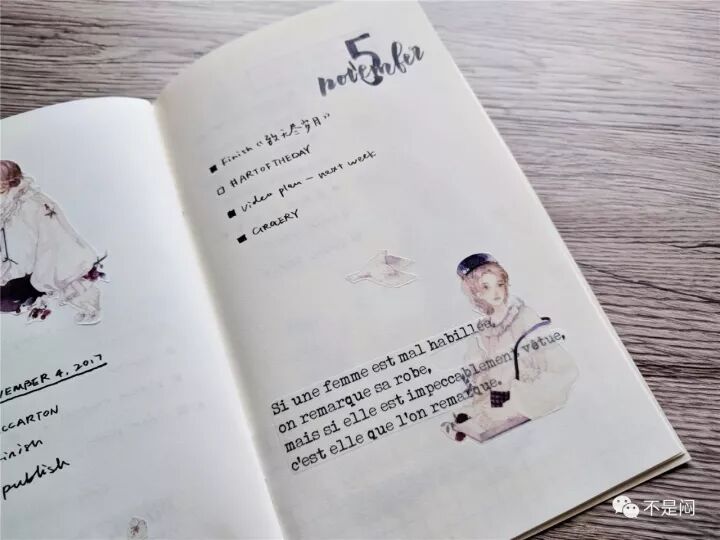 VEMBER 4, 2017
CCARTON
inish
publish
5
november
Finish《数不尽岁月》
#ARTOFTHEDAY
video plan - next week
GROCERY
Si une femme est mal habillée,
on remarque sa robe,
mais si elle est impeccablement vêtue,
c'est elle que l'on remarque.
不是闷